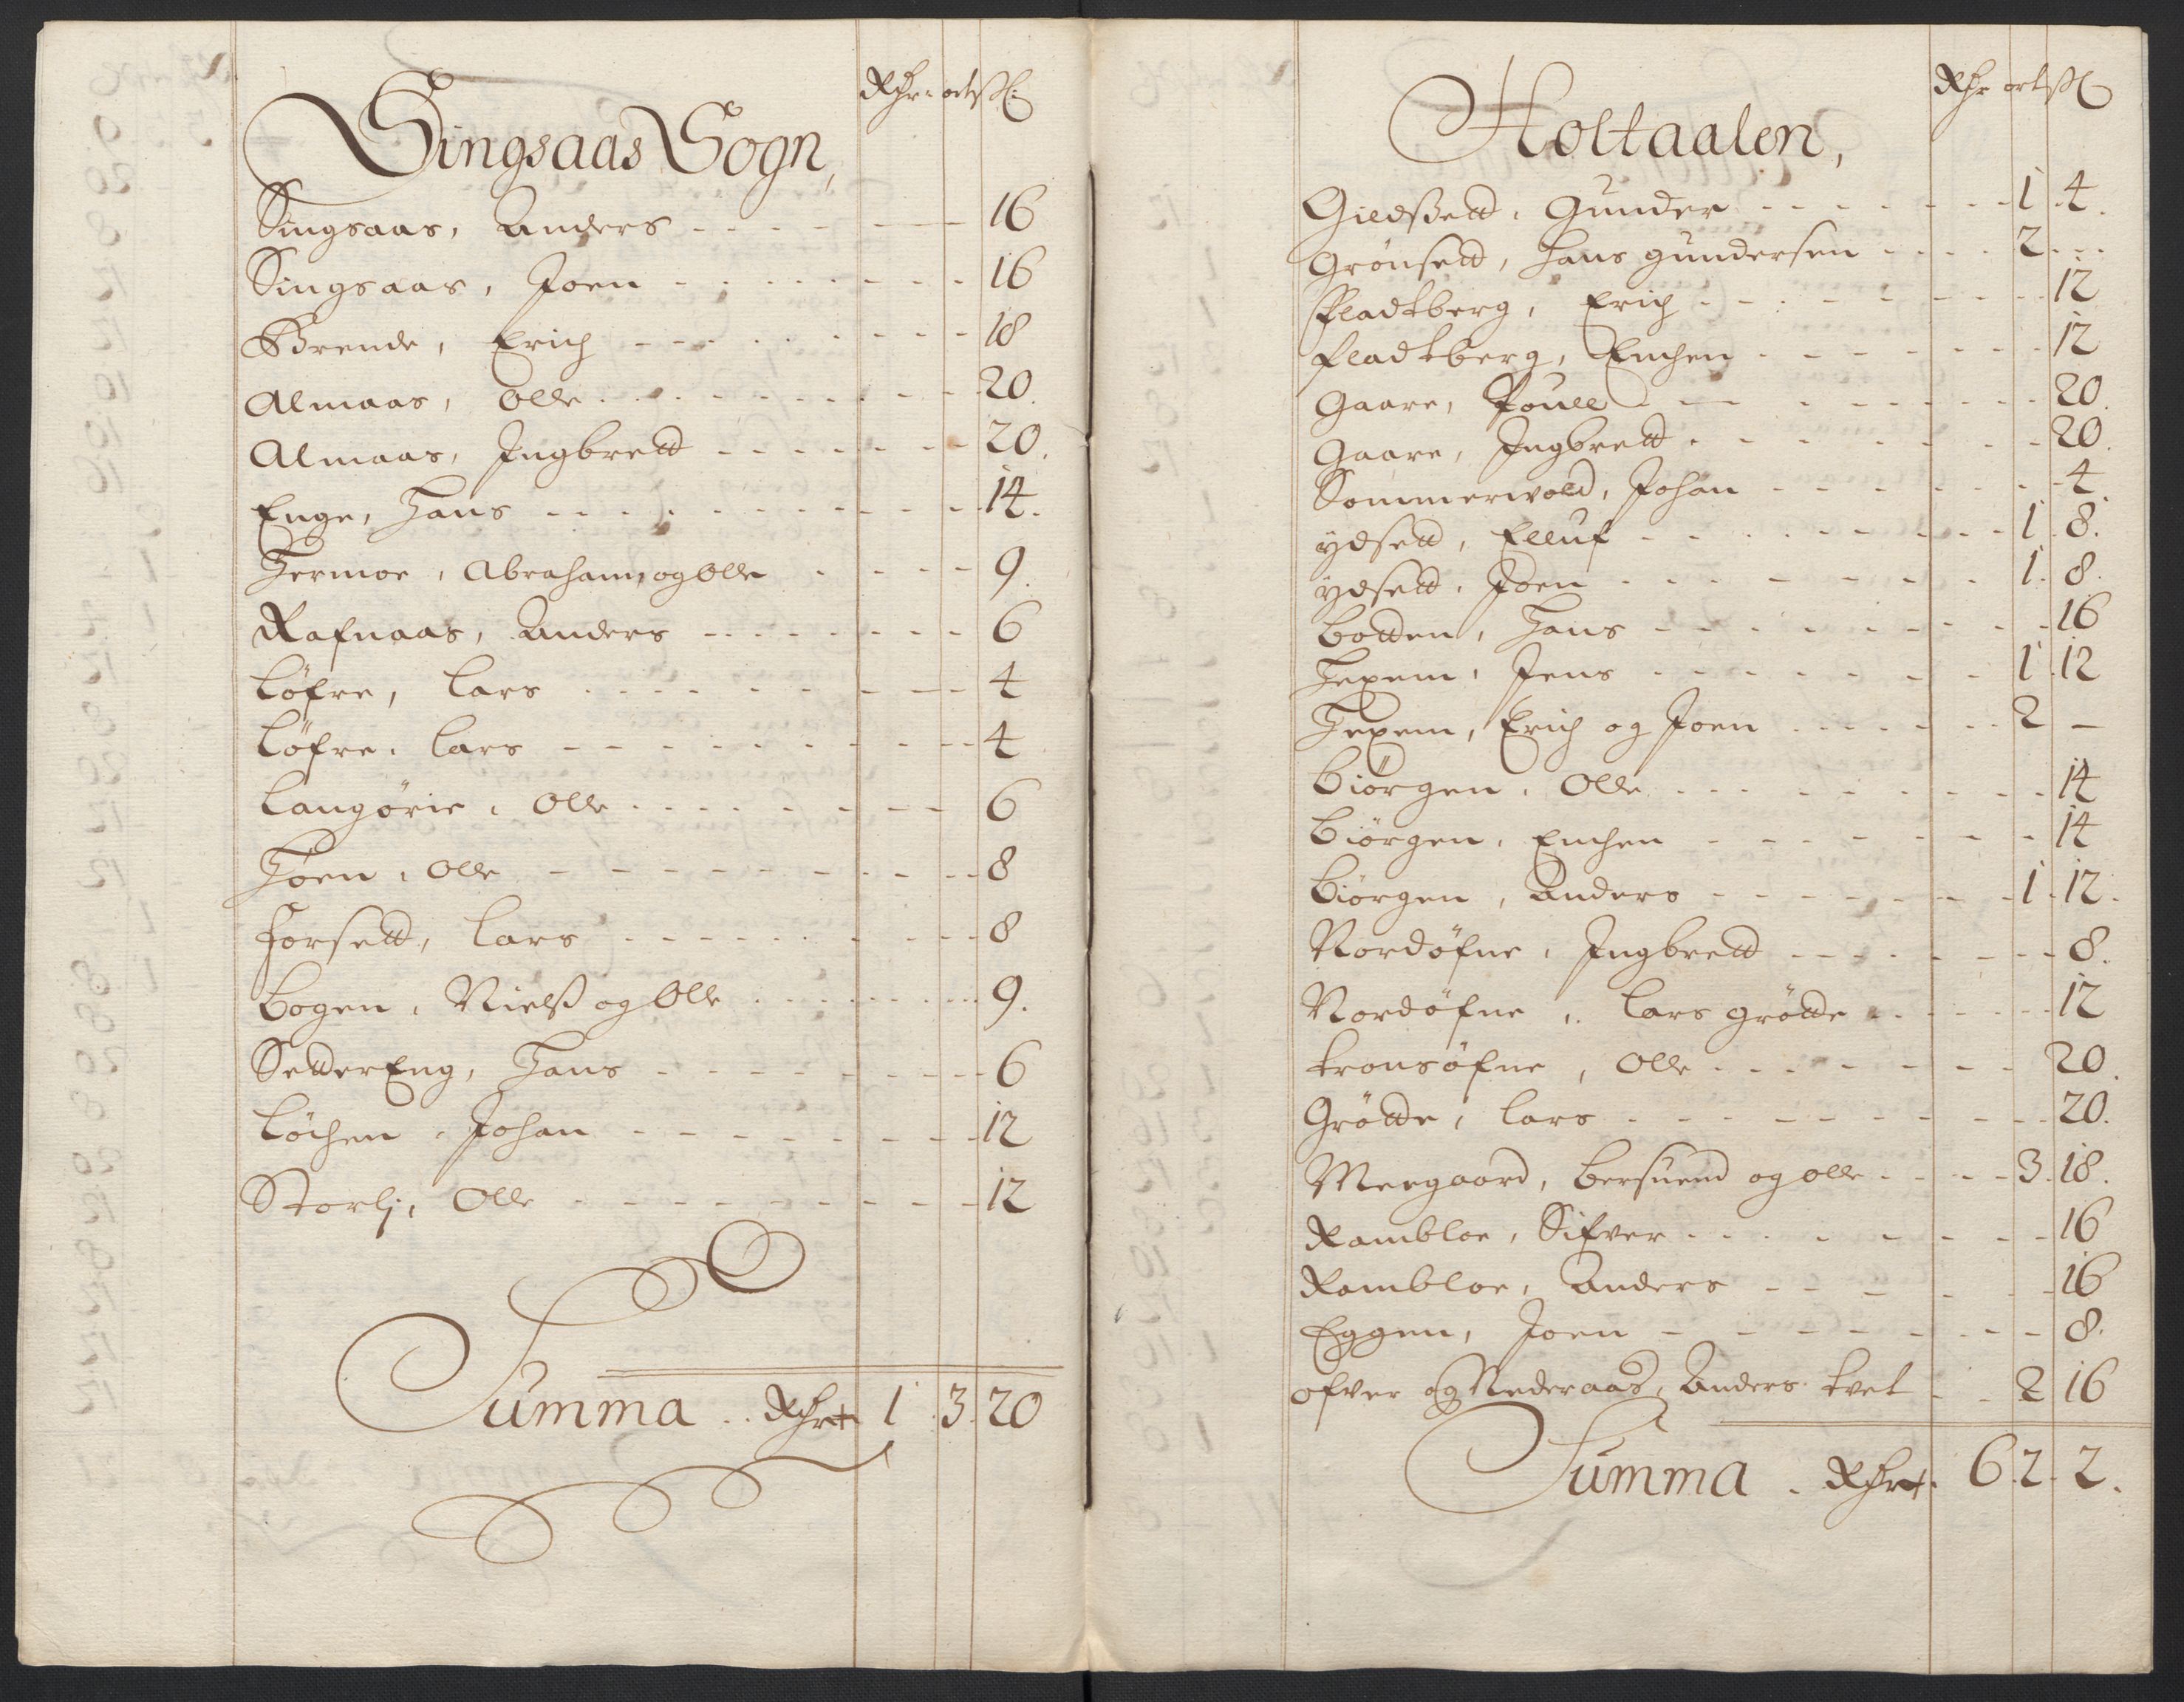 Rdr: ort ß:
Singsaas Sogn,
Singsaas, Anders 16
Singsaas, Joen 16
Brende, Erich 18
Almaas, Olle 20.
Almaas, Ingbrett 20.
Enge, Hans 14.
Hermoe, Abraham, og Olle 9.
Rafnaas, Anders 6
Løfre, Lars 4
Løfre, Lars 4
Langørie, Olle 6
Høen, Olle 8
Forsett, Lars 8
Bogen, Nielß og Olle 9.
SetterEng, Hans 6
Løchen, Johan 12
Storlj, Olle 12
Summa Rdr 1 3 20
Rdr ort ß
Holtaalen,
Gieldßett, Gunder 1 4.
Grønsett, Hans Gundersen 2
Fladtberg, Erich 12
Fladtberg, Enchen 12
Gaare, Pouell 20.
Gaare, Ingbrett 20.
Sommerwold, Johan 4.
ydsett, Elluf 1 8.
ydsett, Joen 1. 8.
Botten, Hans 16
Hexem, Jens 1 12
Hexem, Erich og Joen 2 -
Biörgen, Olle 14
Biörgen, Enchen 14
Biörgen, Anders 1 12.
Nordøfne, Ingbrett 8.
Nordøfne, Lars Grøtte 12
Tronsøfne, Olle 20.
Grøtte, Lars 20.
Meegaard, Bersuend og Olle 3. 18.
Rambloe, Sifver 16
Rambloe, Anders 16
Eggen, Joen 8.
Ofver og Nederaas, Anders Tvet 2 16
Summa Rdr 6. 2. 2.